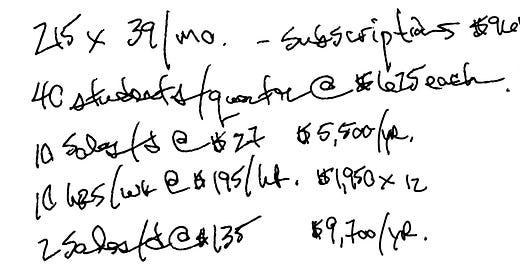 215 x 39/mo. - subscriptions $9
40 students/quarter @ $675 each.
10 Sales/ @ $27 $5,500/yr.
10 hrs/wk @ $195/hr. $1,950 x 12
2 Sales/ @ $135 $9,700/yr.